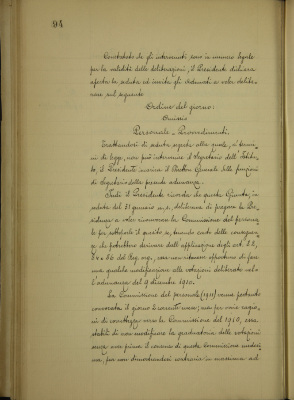 94
Constatato che gli intervenuti sono in numero legale
per la validità delle deliberazioni, il Presidente dichiara
aperta la seduta ed invita gli adunati a voler delibe-
rare sul seguente
Ordine del giorno:
Omissis
Personale - Provvedimenti.
Trattandosi di seduta segreta alla quale, a termi-
ni di legge, non può intervenire il Segretario dell'Istitu-
to, il Presidente incarica il delle funzioni
di Segretario della presente adunanza.
Indi il Presidente ricorda che questa Giunta, in
seduta del 31 gennaio u.s. deliberava di pregare la Pre-
sidenza a voler riconvocare la Commissione del persona-
le per sottoporle il quesito se, tenendo conto delle conseguen-
ze che potrebbero derivare dall'applicazione degli art. 22,
e 36 del Reg. org., essa non ritenesse opportuno di fare
una qualche modificazione alle votazioni deliberate nel-
l'adunanza del 9 dicembre 1910.
La Commissione del personale (1911) venne pertanto
convocata il giorno 2 corrente mese; ma per ovvie ragio-
ni di correttezza verso la Commissione del 1910, essa
stabilì di non modificare la graduatoria delle votazioni
senza aver prima il consenso di questa Commissione
ma, pur non dimostrandosi contraria in massima ad